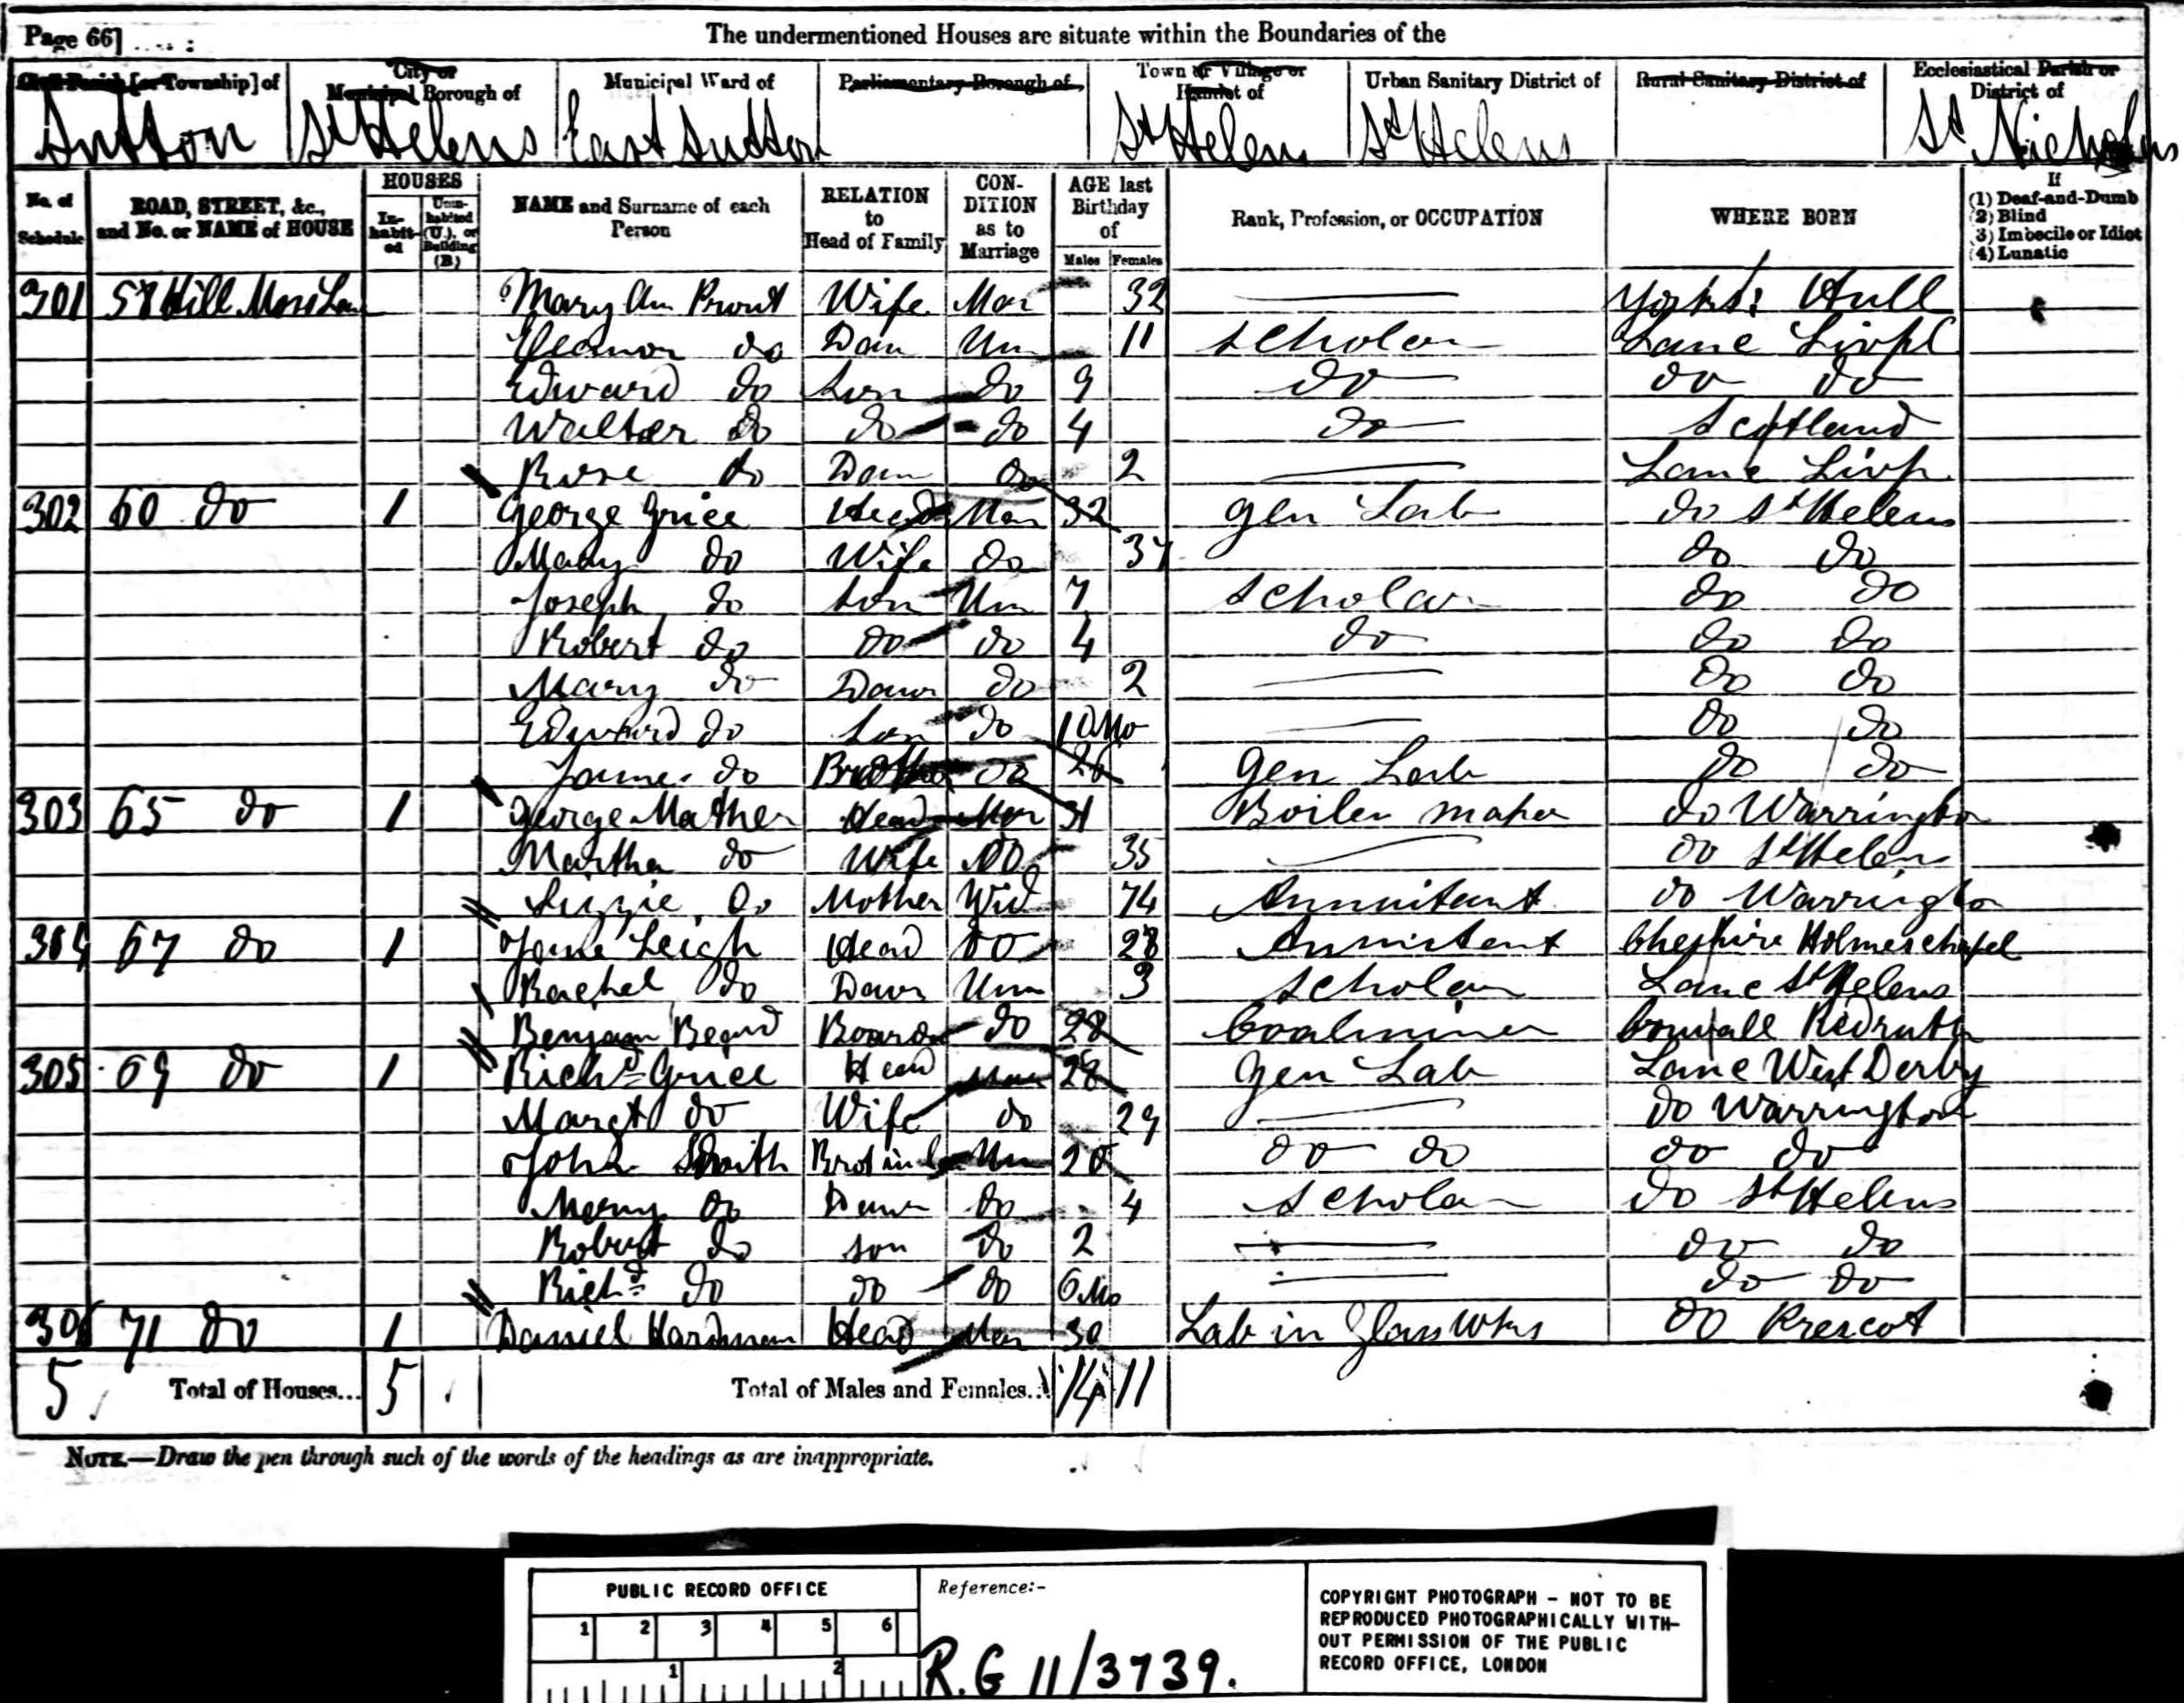 Page 66]
The undermentioned Houses are situate within the Boundaries of the
Civil Parish [or Township] of
City or Municipal Borough of
Municipal Ward of
Parliamentary Borough of
Town or Village or Hamlet of
Urban Sanitary District of
Rural Sanitary District of
Ecclesiastical Parish or District of
Sutton St Helens East Sutton St Helens St Helens St Nicholas
No. of Schedule
ROAD, STREET, &c., and No. or NAME of HOUSE
HOUSES
In-habit-ed
Unin-habited (U.), or Building (B.)
NAME and Surname of each Person
RELATION to Head of Family
CON-DITION as to Marriage
AGE last Birthday of
Males Females
Rank, Profession, or OCCUPATION
WHERE BORN
If
(1) Deaf-and-Dumb
(2) Blind
(3) Imbecile or Idiot
(4) Lunatic
301 58 Hill Moss Lane Mary Ann Prout Wife Mar 32 Yorks: Hull
Eleanor do Daur Un 11 Scholar Lanc Livpl
Edward do Son do 9 do do do
Walter do do do 4 do Scotland
Rose do Daur do 2 Lanc Livp
302 60 do 1 George Grice Head Mar 32 Gen Lab do St Helens
Mary do Wife do 37 do do
Joseph do Son Un 7 Scholar do do
Robert do do do 4 do do do
Mary do Daur do 2 do do
Edward do Son do 10 Mo do do
James do Brother do 26 Gen Lab do do
303 65 do 1 George Mather Head Mar 31 Boiler maker do Warrington
Martha do Wife do 35 do St Helens
Lizzie do Mother Wid 74 Annuitant do Warrington
304 67 do 1 Jane Leigh Head do 28 Annuitant Cheshire Holmeschapel
Rachel do Daur Un 3 Scholar Lanc St Helens
Benjam Beard Boarder do 28 Coalminer Cornwall Redruth
305 69 do 1 Richd Grice Head Mar 28 Gen Lab Lanc West Derby
Margt do Wife do 29 do Warrington
John Smith Brot in L Un 20 do do do do
Mary do Daur do 4 Scholar do St Helens
Robert do son do 2 do do
Richd do do do 6 Mo do do
306 71 do 1 Daniel Hardman Head Mar 30 Lab in Glass Wks do Prescot
5 Total of Houses... 5 Total of Males and Females... 14 11
NOTE.—Draw the pen through such of the words of the headings as are inappropriate.
PUBLIC RECORD OFFICE
1 2 3 4 5 6
1 2
Reference:-
R.G 11/3739.
COPYRIGHT PHOTOGRAPH - NOT TO BE
REPRODUCED PHOTOGRAPHICALLY WITH-
OUT PERMISSION OF THE PUBLIC
RECORD OFFICE, LONDON